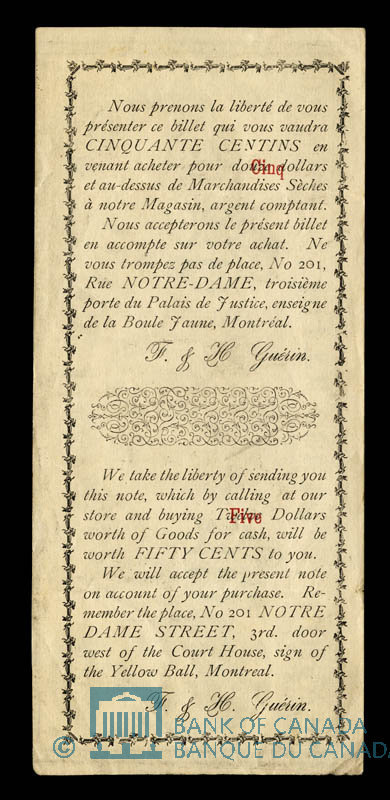 Nous prenons la liberté de vous
présenter ce billet qui vous vaudra
CINQUANTE CENTINS en
venant acheter pour douze Cinq dollars
et au-dessus de Marchandises Sèches
à notre Magasin, argent comptant.
Nous accepterons le présent billet
en accompte sur votre achat. Ne
vous trompez pas de place, No 201,
Rue NOTRE-DAME, troisième
porte du Palais de Justice, enseigne
de la Boule Jaune, Montréal.
F. & H Guérin.
We take the liberty of sending you
this note, which by calling at our
store and buying Twelve Five Dollars
worth of Goods for cash, will be
worth FIFTY CENTS to you.
We will accept the present note
on account of your purchase. Re-
member the place, No 201 NOTRE
DAME STREET, 3rd. door
west of the Court House, sign of
the Yellow Ball, Montreal.
F. & H. Guérin.
BANK OF CANADA
© BANQUE DU CANADA